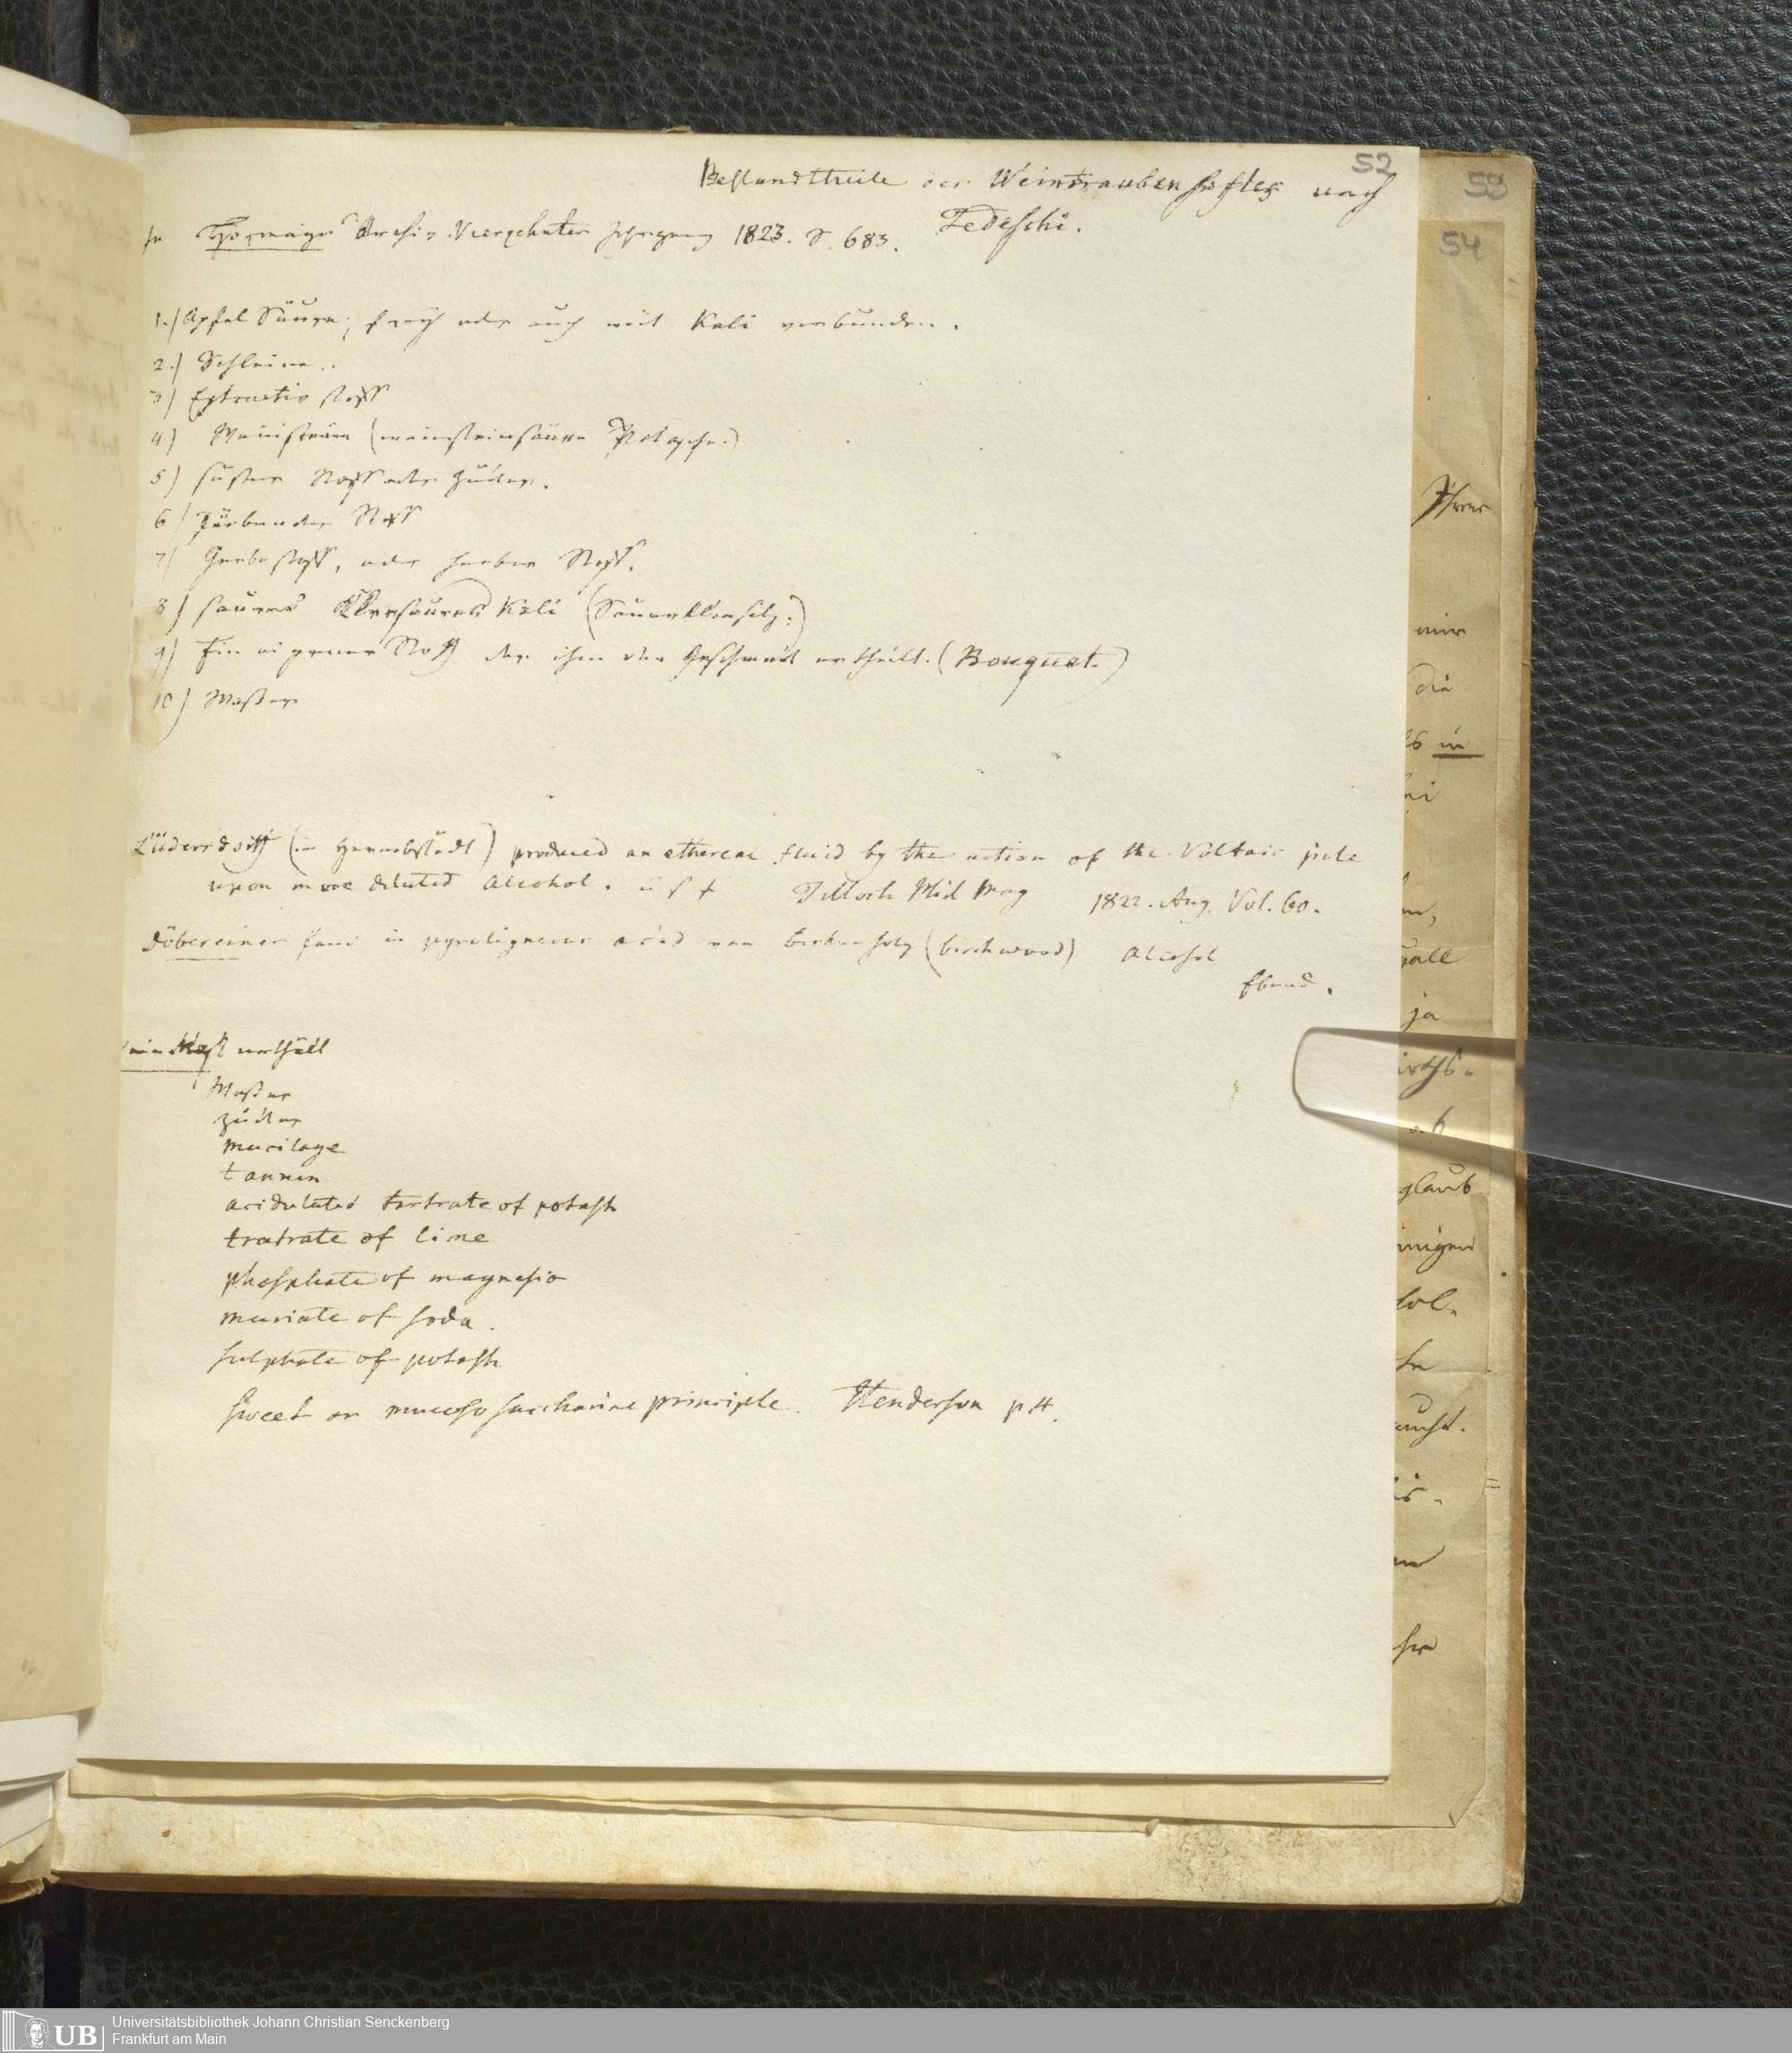 52
Bestandtheile des Weintraubensaftes nach
Tedeschi.
in Hormayrs Archiv Vierzehnter Jahrgang 1823. S. 683.
1.) Apfel Säure; frey oder auch mit Kali verbunden.
2.) Schleim.
3) Extractiv stoff
4) Weinstein (weinsteinsaure Potasche.)
5) süßer Stoff oder Zucker.
6) Färbender Stoff
7) Gerbestoff, oder herber Stoff.
8) saures Kleesaures Kali (Sauerkleesalz.)
9) Ein eigener Stoff der ihm den Geschmack ertheilt. (Bouquet.)
10) Wasser
Lüdersdorff (in Hermbstädt) produced an ethereal fluid by the action of the Voltaic pile
upon more diluted Alcohol. Tilloch Phil Mag 1822. Aug. Vol. 60.
Döbereiner fand in pyroligneous acid von Birkenholz (birchwood) Alcohol
Ebend.
Most enthält
Wasser
Zucker
mucilage
tannin
acidulated tartrate of potash
tratrate of lime
phosphate of magnesia
muriate of soda.
sulphate of potash
sweet or mucoso saccharine principle. Henderson p
53
54
mir
die
in
ja
glaub
Universitätsbibliothek Johann Christian Senckenberg
Frankfurt am Main
UB